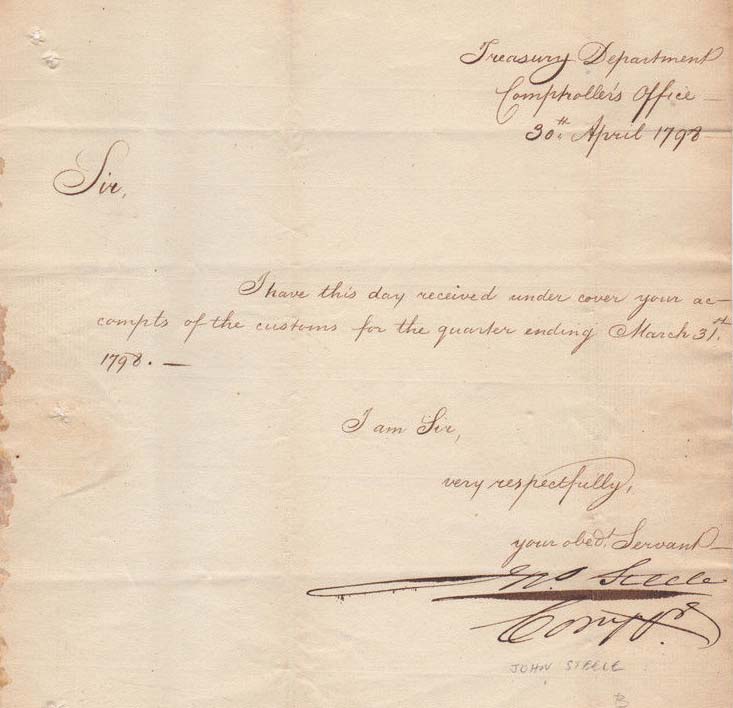 Treasury Department
Comptroller's Office —
30th April 1798
Sir,
I have this day received under cover your ac-
compts of the customs for the quarter ending March 31st.
1798. —
I am Sir,
very respectfully,
your obedt. Servant —
Jno Steele
Compr
JOHN STEELE
B